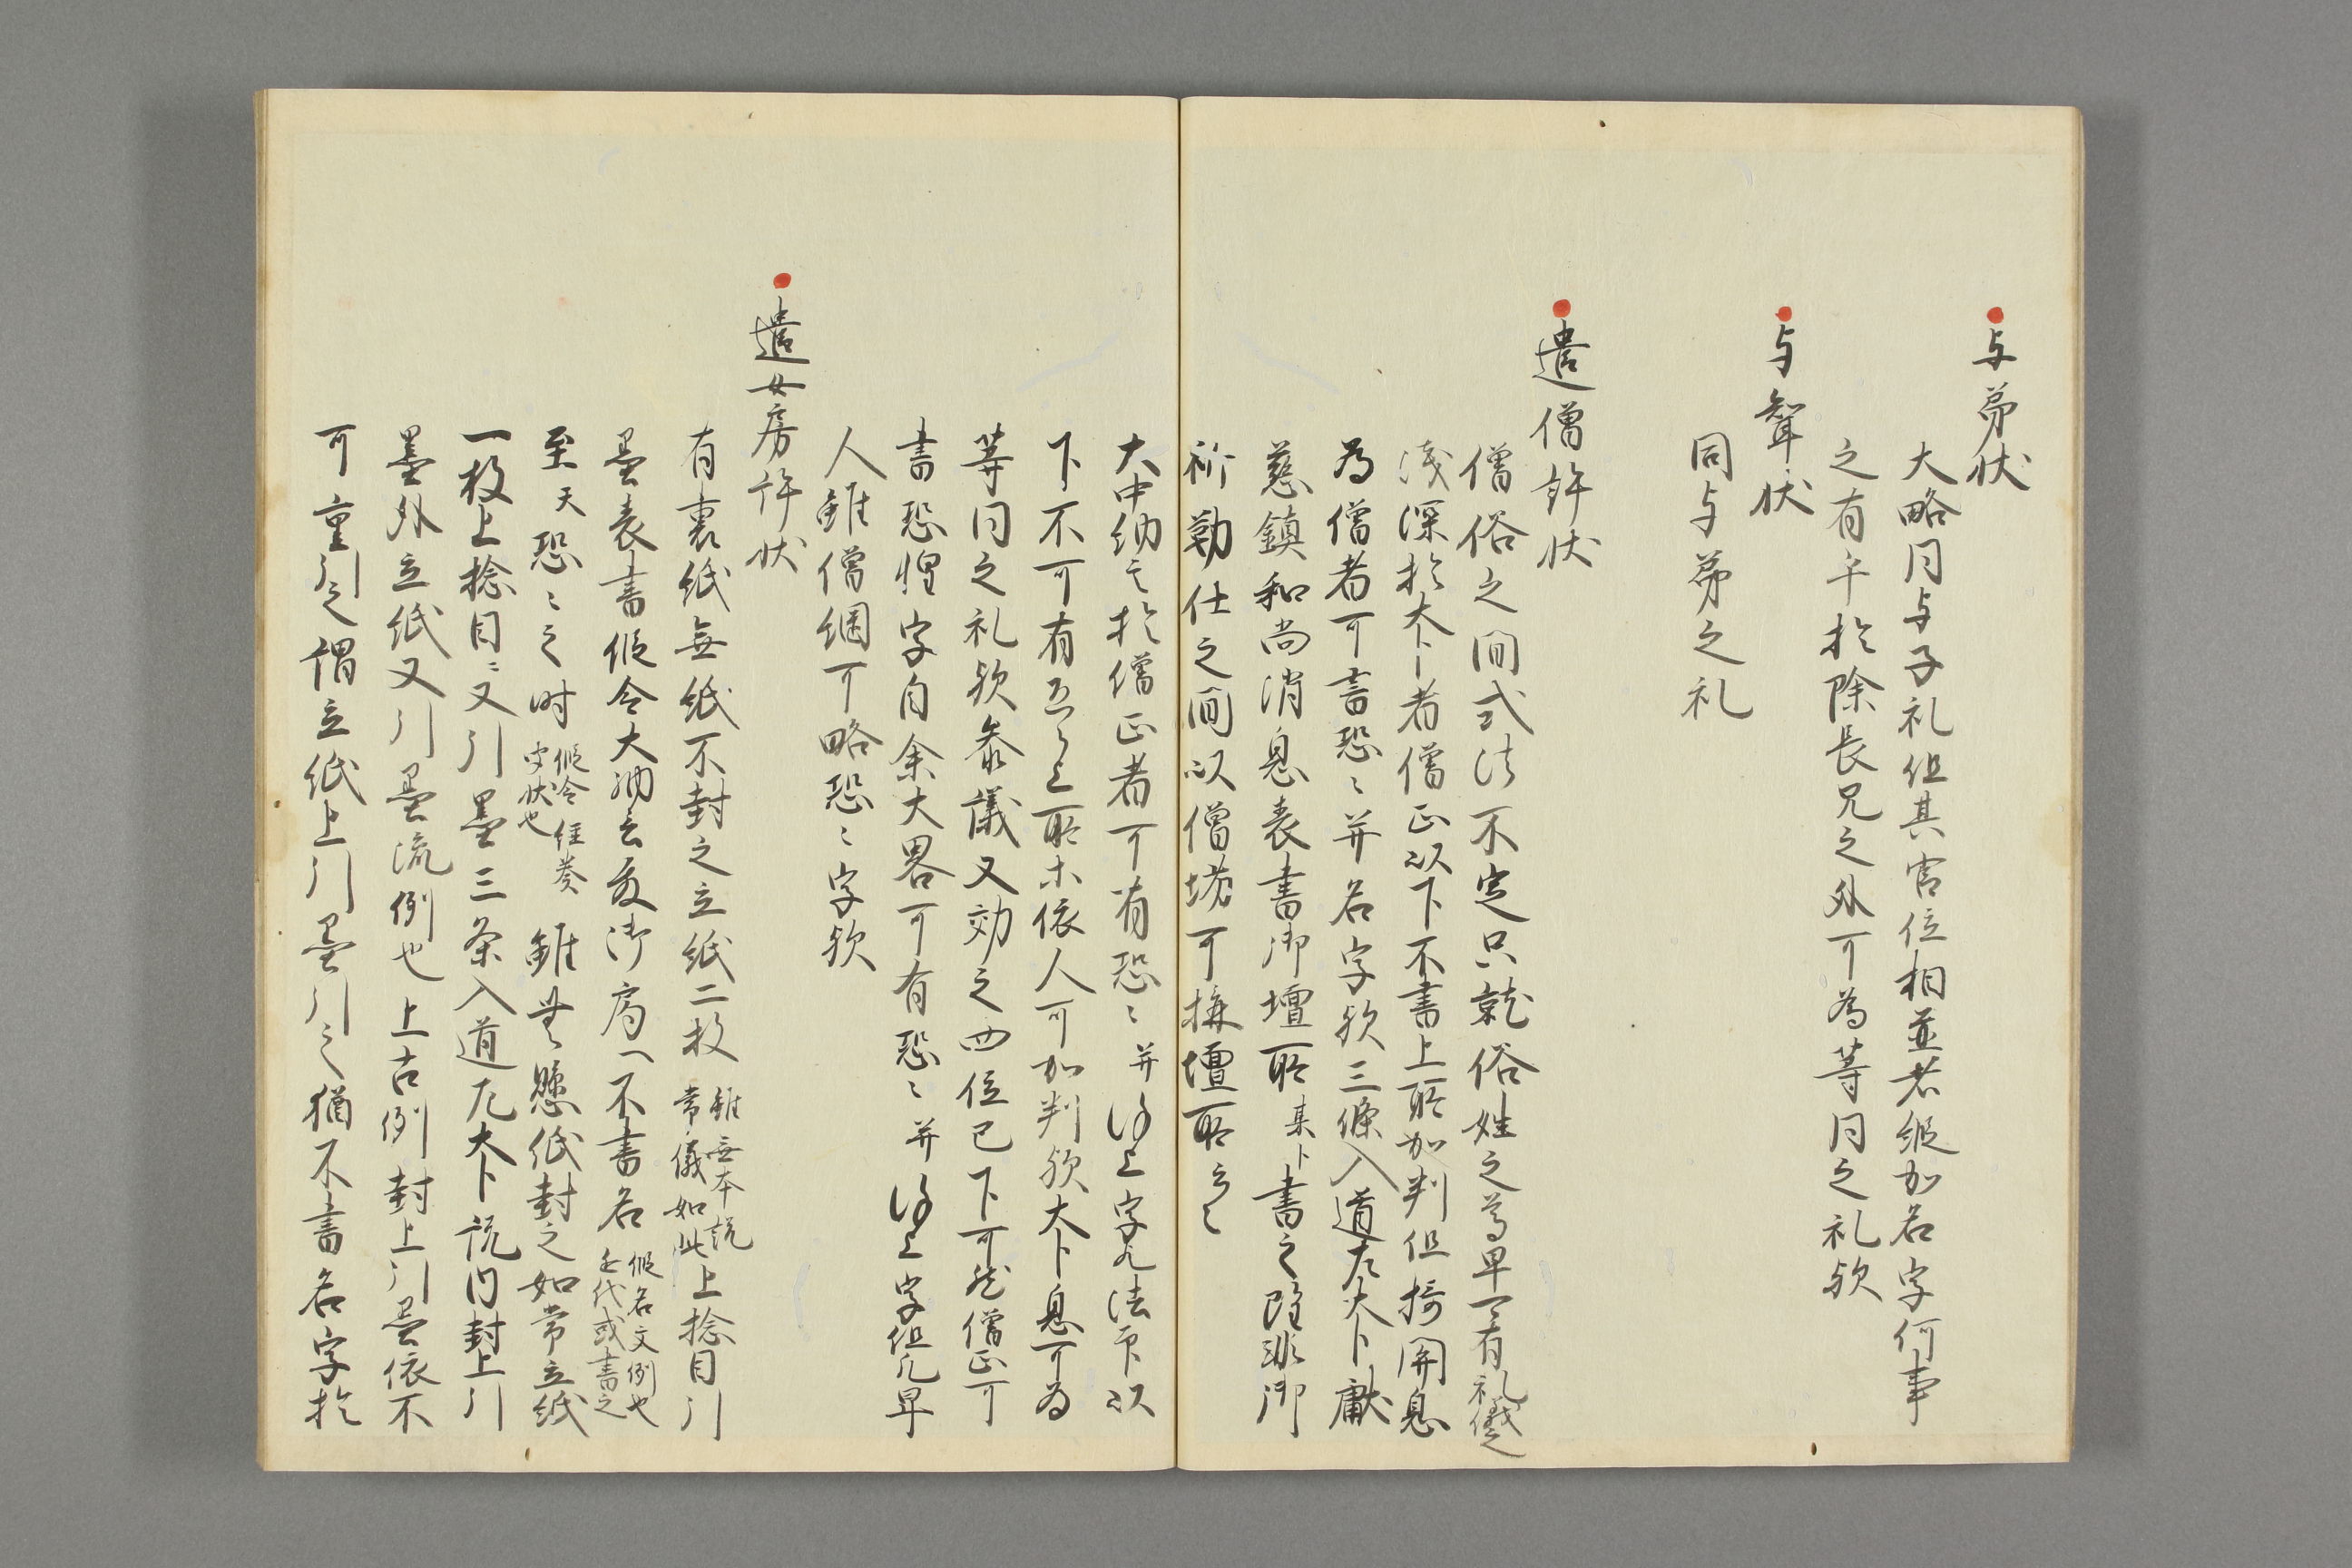 与弟状
大略同与子礼但其官位相並者縦加名字何事
之有乎於除長兄之外可為等同之礼欤
与聟状
同与弟之礼
遣僧許状
僧俗之間式法不定只就俗姓之尊卑可有礼儀之
浅深於大卜者僧正以下不書上所加判但摂関息
為僧者可書恐々并名字欤三條入道左大卜献
慈鎮和尚消息表書御壇所某卜書之既非御
祈勤仕之間以僧坊可称壇所云々
大中納言於僧正者可有恐々并謹上字凡法印以
下不可有恐々上所等依人可加判欤大卜息可為
等同之礼欤参議又効之四位已下可然僧正可
書恐惶字自余大略可有恐々并謹上字但凡卑
人雖僧綱可略恐々字欤
遣女房許状
有裏紙無紙不封之立紙二枚雖無本説常儀如此上捻目引
墨表書假令大納言殿御局へ不書名假名文例也上代或書之
至天恐々之時假令任葵字状也雖無懸紙封之如常立紙
一枚上捻目々又引墨三条入道左大卜説内封上引
墨外立紙又引墨流例也上古例封上引墨依不
可重引之謂立紙上引墨引之猶不書名字於